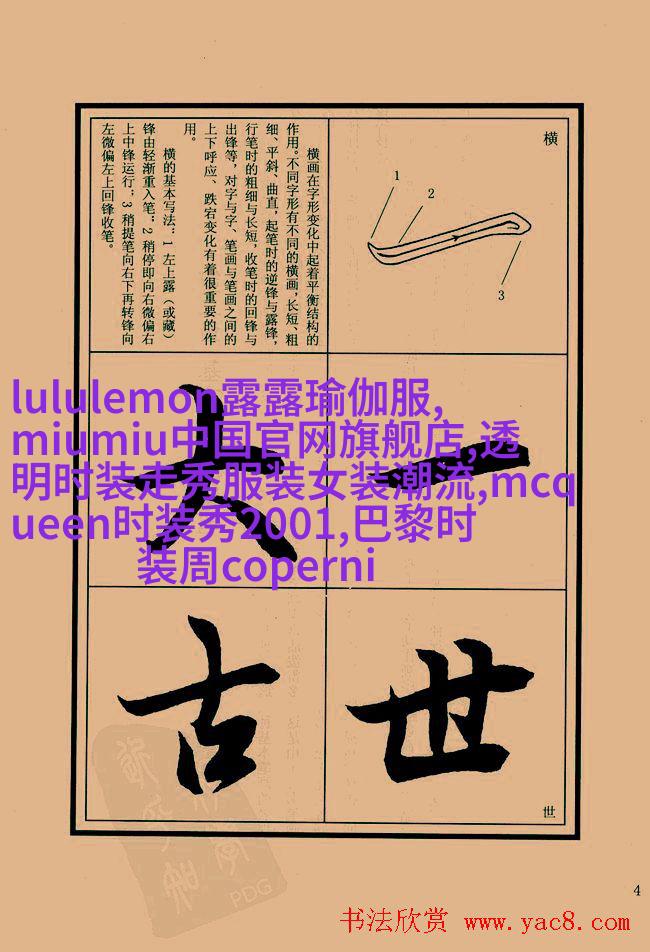 横
1
2
3
横画在字形变化中起着平衡结构的
作用。不同字形有不同的横画，长短、粗
细、平斜、曲直，起笔时的逆锋与露锋，
行笔时的粗细与长短，收笔时的回锋与
出锋等，对字与字、笔画与笔画之间的
上下呼应、跌宕变化有着很重要的作
用。
横的基本写法：1 左上露（或藏）
锋由轻渐重入笔；2 稍停即向右微偏右
上中锋运行；3 稍提笔向右下再转锋向
左微偏左上回锋收笔。
lululemon露露瑜伽服,
miumiu中国官网旗舰店,透
明时装走秀服装女装潮流,mcq
ueen时装秀2001,巴黎时
装周coperni
一
六
世
古
世
4
PDG
书法欣赏 www.yac8.com